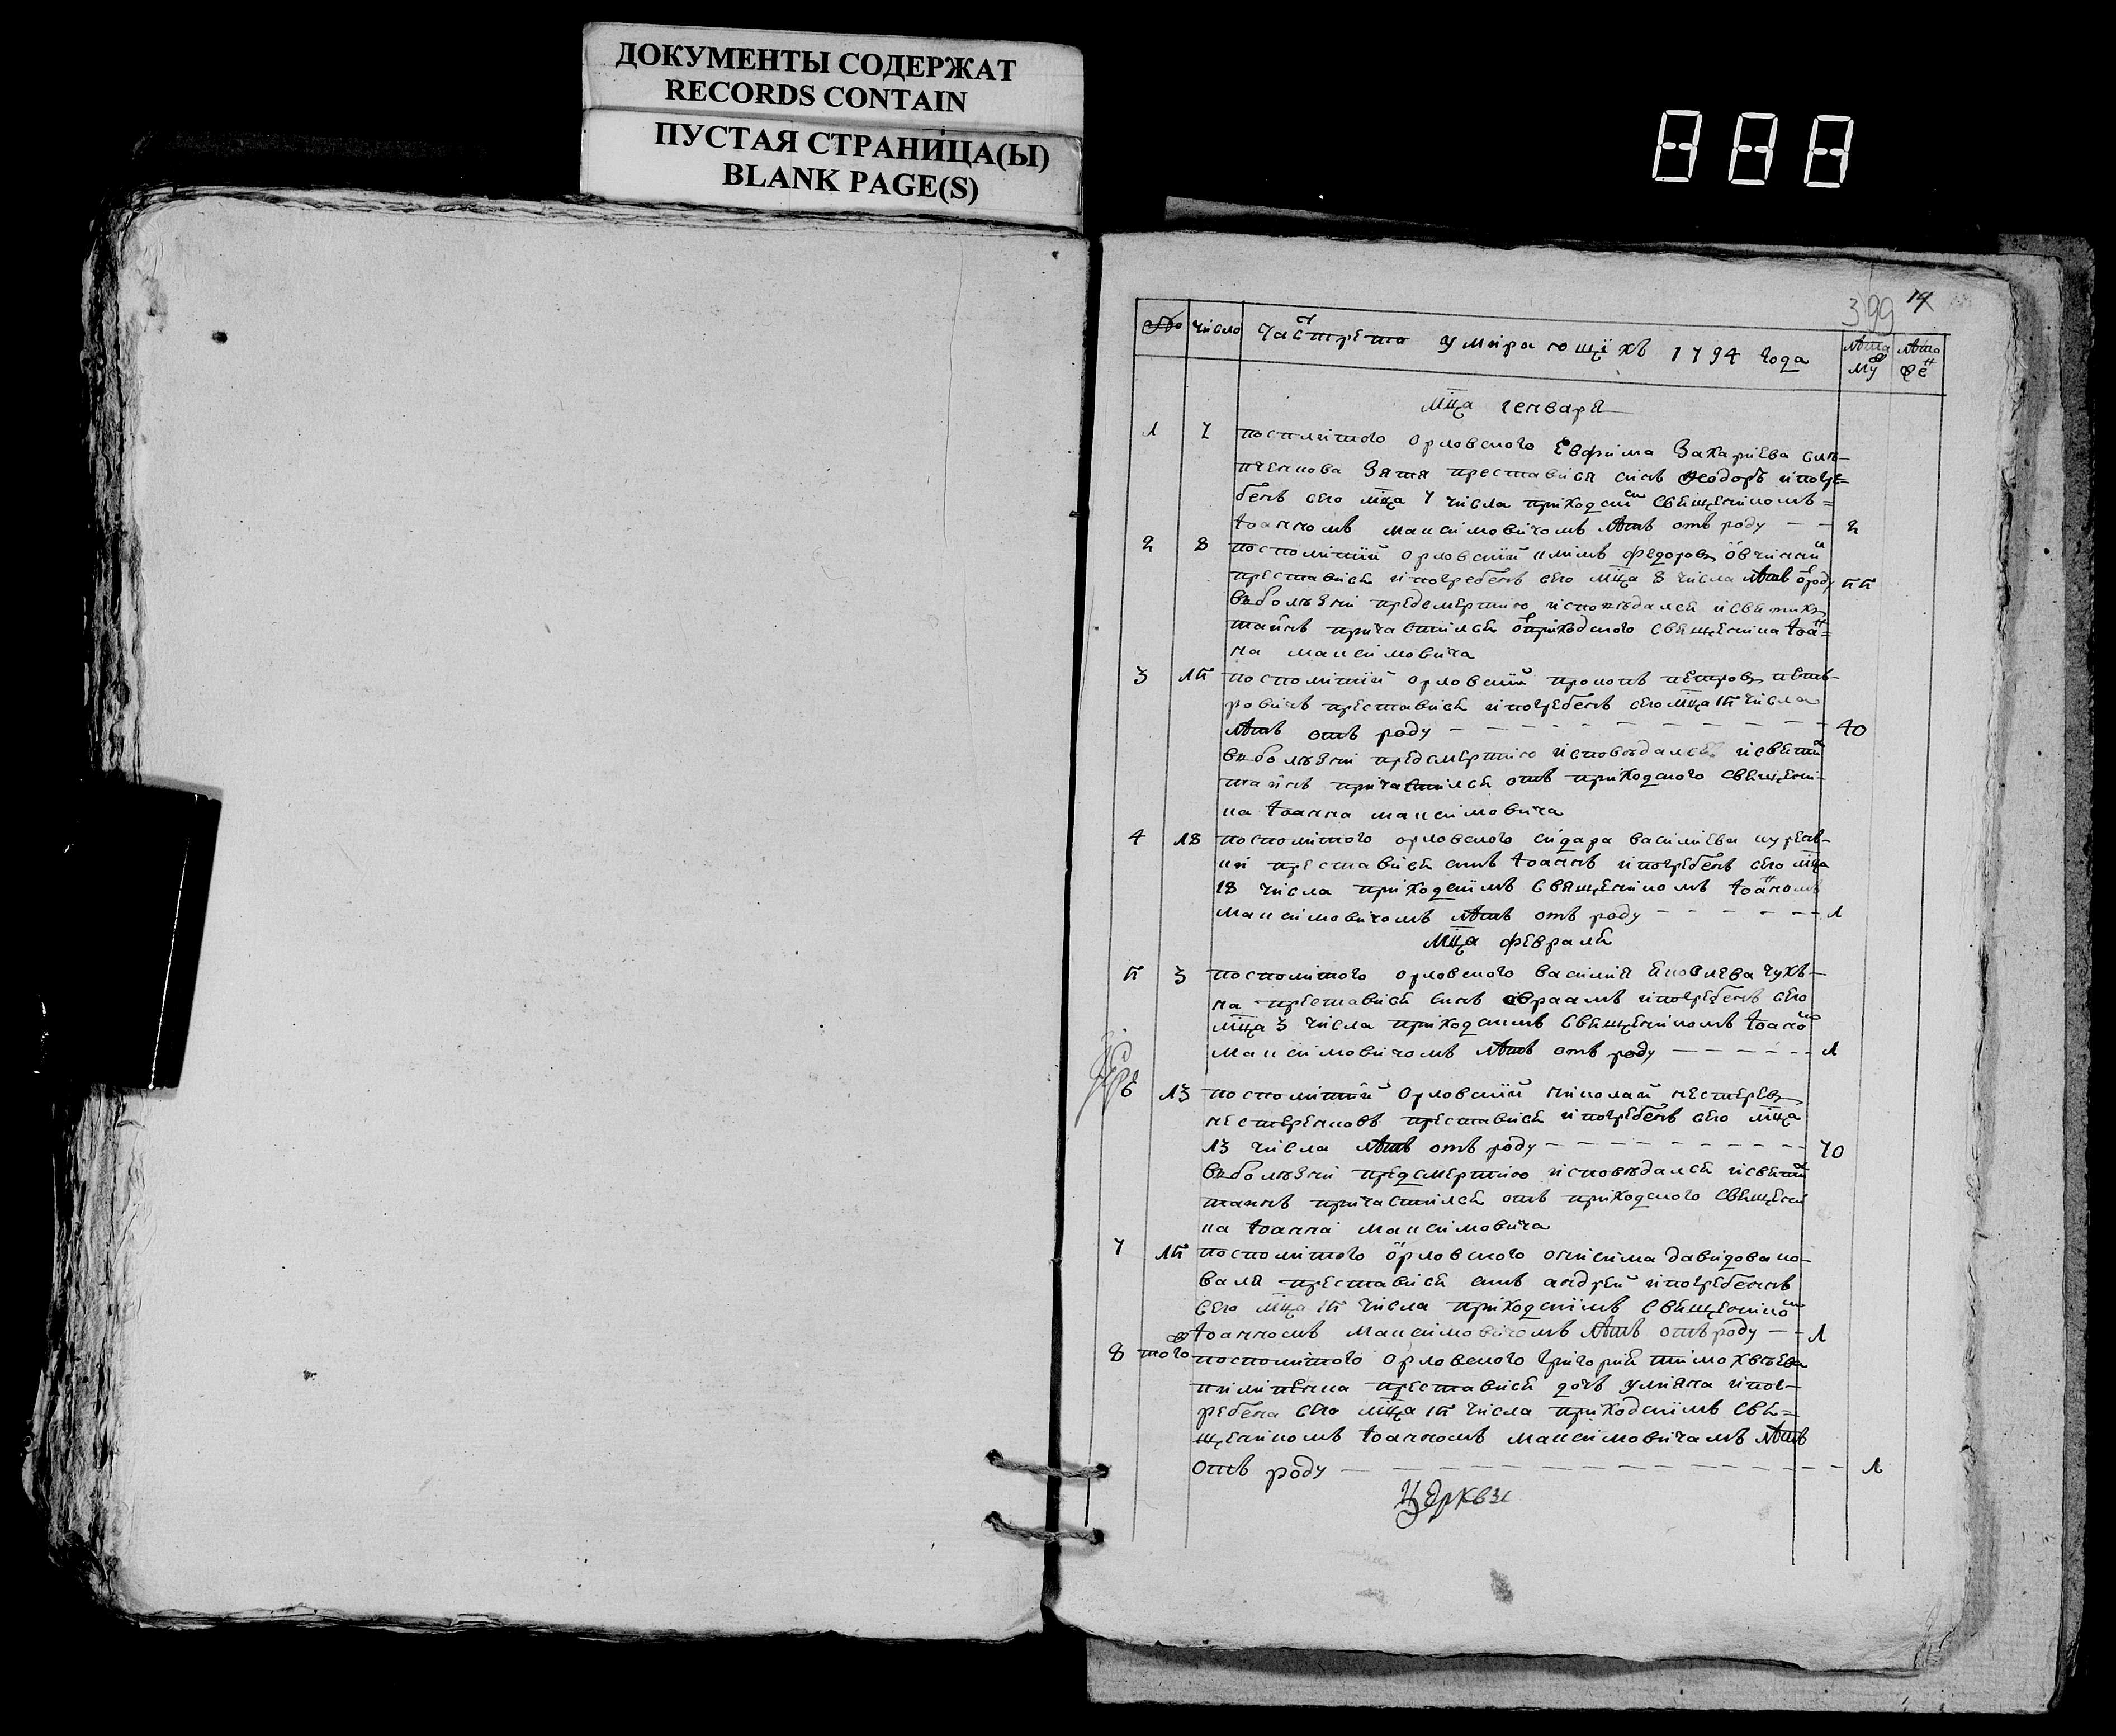 ДОКУМЕНТЫ СОДЕРЖАТ
RECORDS CONTAIN
ПУСТАЯ СТРАНИЦА(Ы)
BLANK PAGE(S)
888
399 14
№ число Часть третя умирающихъ 1794 года лета му лета же
Мца генваря
1 7 посполитого орловского Евфима Захариева
зятя преставися синъ Феодоръ и погре=
бенъ сего мца 7 числа приходски священикомъ=
Іоанномъ Максимовичомъ летъ отъ роду — — 2
2 8 посполитий орловский климъ федоровъ овчиний
преставися и погребенъ сего мца 8 числа летъ о роду 55
въ болезни предсмертною исповедался и святихъ
таинъ причастился о приходского священика Іоа=
на Максимовича
3 15 посполитий орловский прокопъ петровъ пет
ровичъ преставися и погребенъ сего мца 15 числа
летъ отъ роду — — — — 40
въ болезни предсмертною исповедался и святи
таинъ причастился отъ приходского священи-
ка Іоанна Максимовича
4 18 посполитого орловского сидара василиева
преставися синъ Іоаннъ и погребенъ сего мца
18 числа приходскимъ священикомъ Іоаномъ
Максимовичомъ летъ отъ роду — — — — 1
Мца февраля
5 3 посполитого орловского василия яковлева чух-
на преставися синъ авраамъ и погребенъ сего
мца 3 числа приходскимъ священикомъ Іоано
Максимовичомъ летъ отъ роду — — — — 1
6 13 посполитий орловский николай нестеревъ
нестеренковъ преставися и погребенъ сего мца
13 числа летъ отъ роду — — — — 70
въ болезни предсмертною исповедался и святи
таинъ причастился отъ приходского священи
ка Іоанна Максимовича
7 15 посполитого орловского онисима давидова ко-
валя преставися синъ андрей и погребеннъ
сего мца 15 числа приходскимъ священико
Іоанномъ Максимовичомъ летъ отъ роду — — 1
8 того посполитого орловского григория тимохвеева
преставися дочъ улияна и пог-
ребена сего мца 15 числа приходскимъ свя=
щеникомъ Іоанномъ Максимовичамъ летъ
отъ роду — — — — 1
Церкви